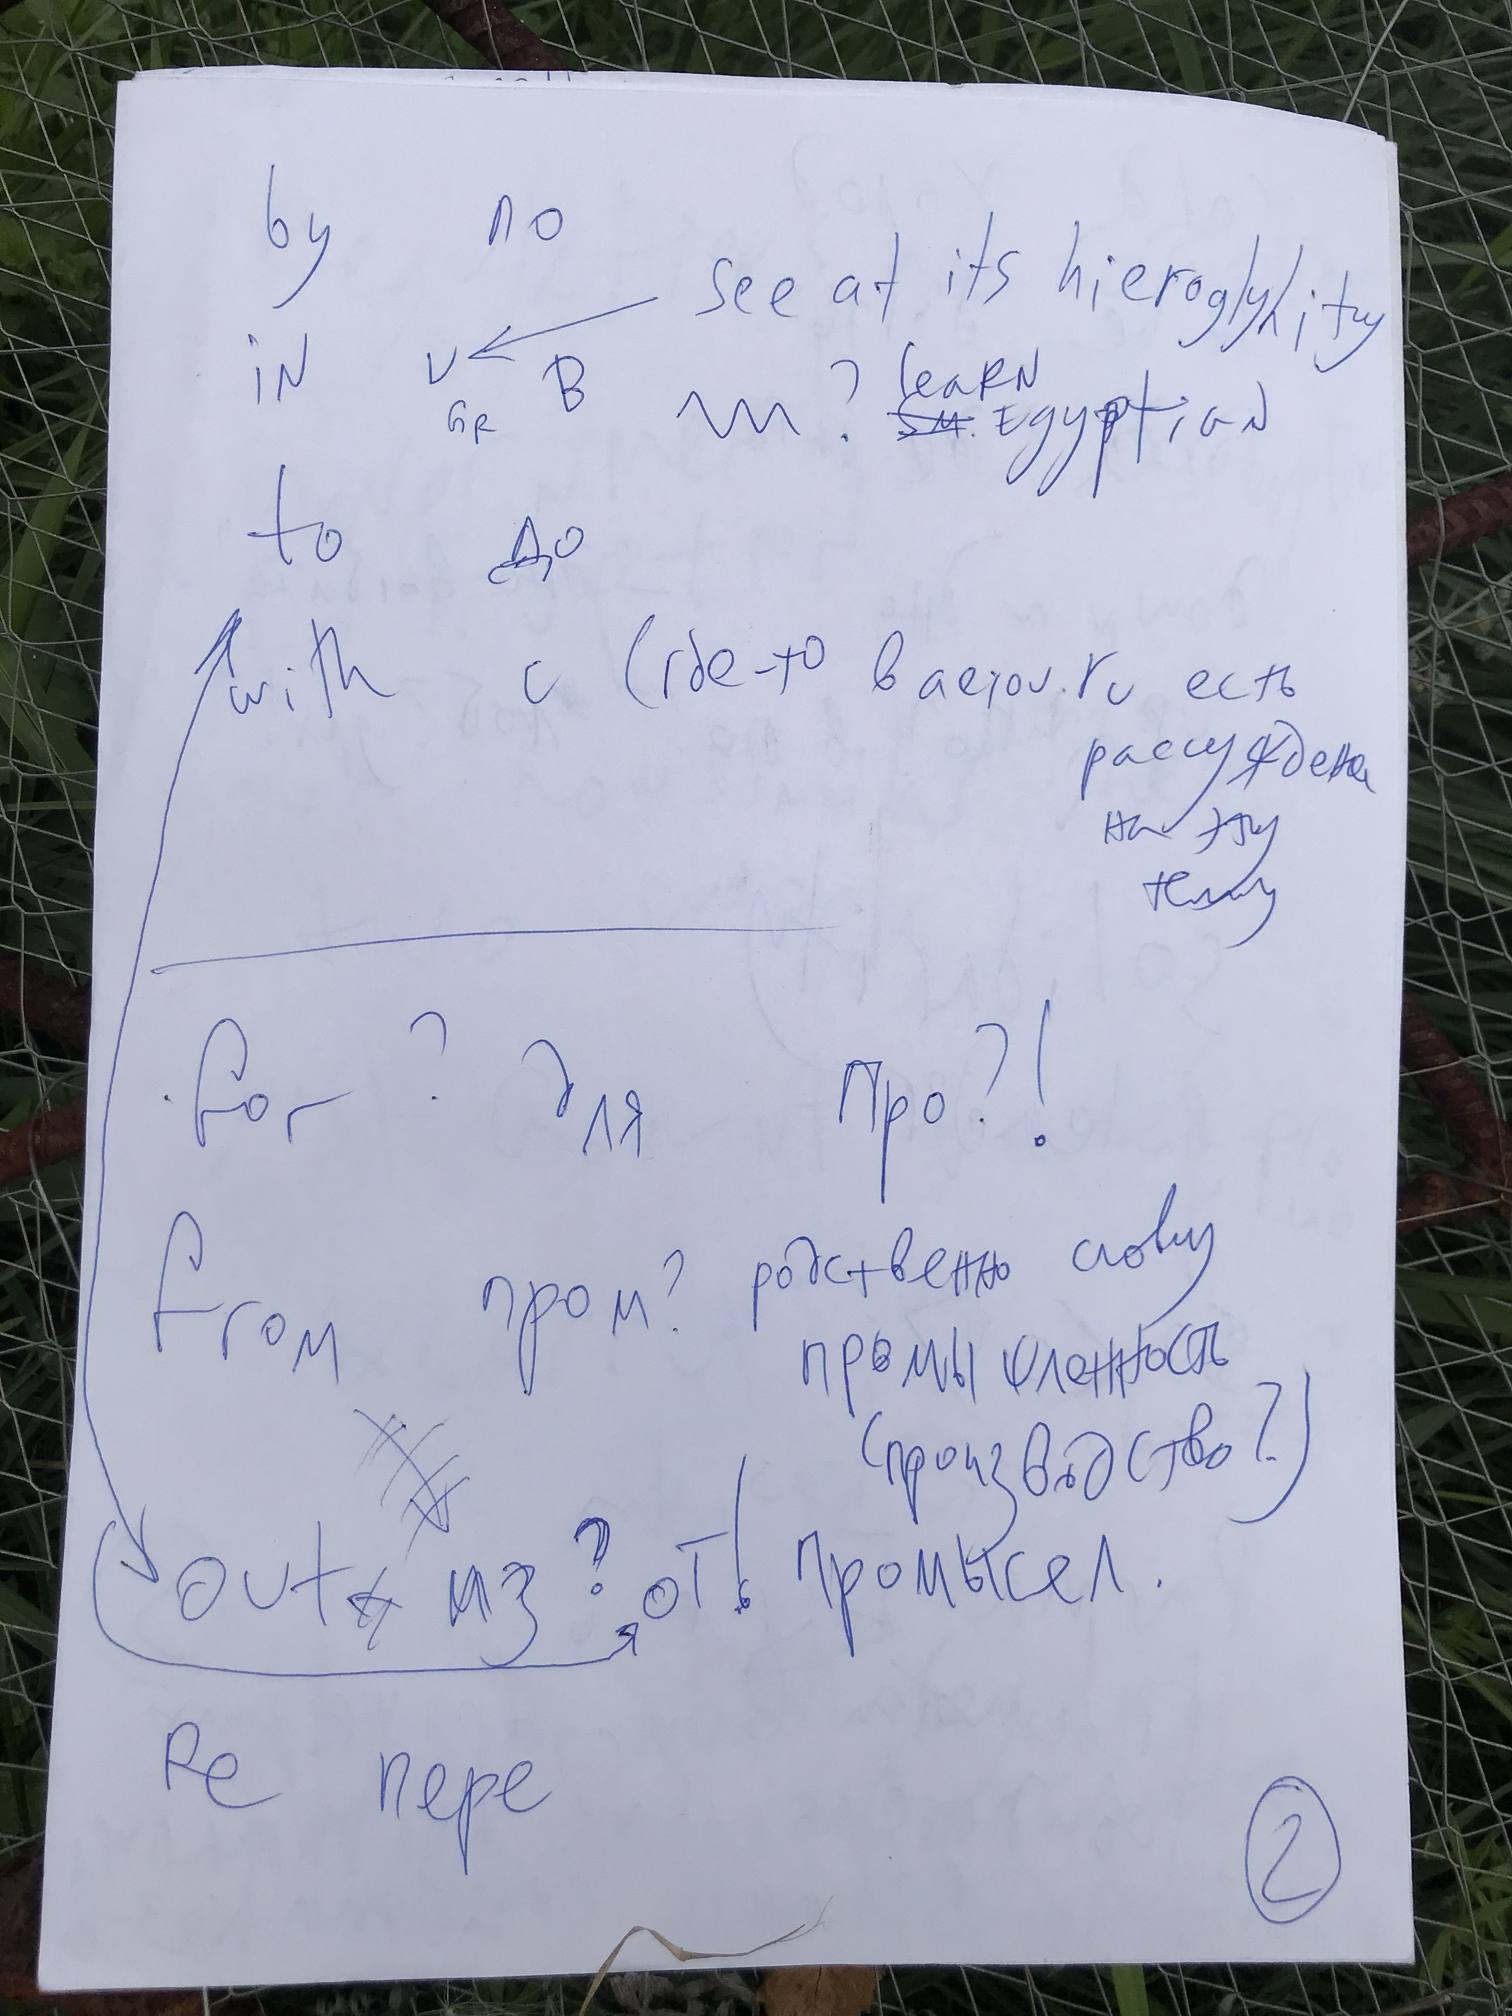 by по
see at its hieroglyhity
in v B ? learn
GR Egyptian
to до
with с (где-то в aeiou.ru есть
рассуждения
на эту
тему
for ? для Про?!
from пром? родственно слову
промышленность
(производство?)
out из? от! промысел.
Re пере
2